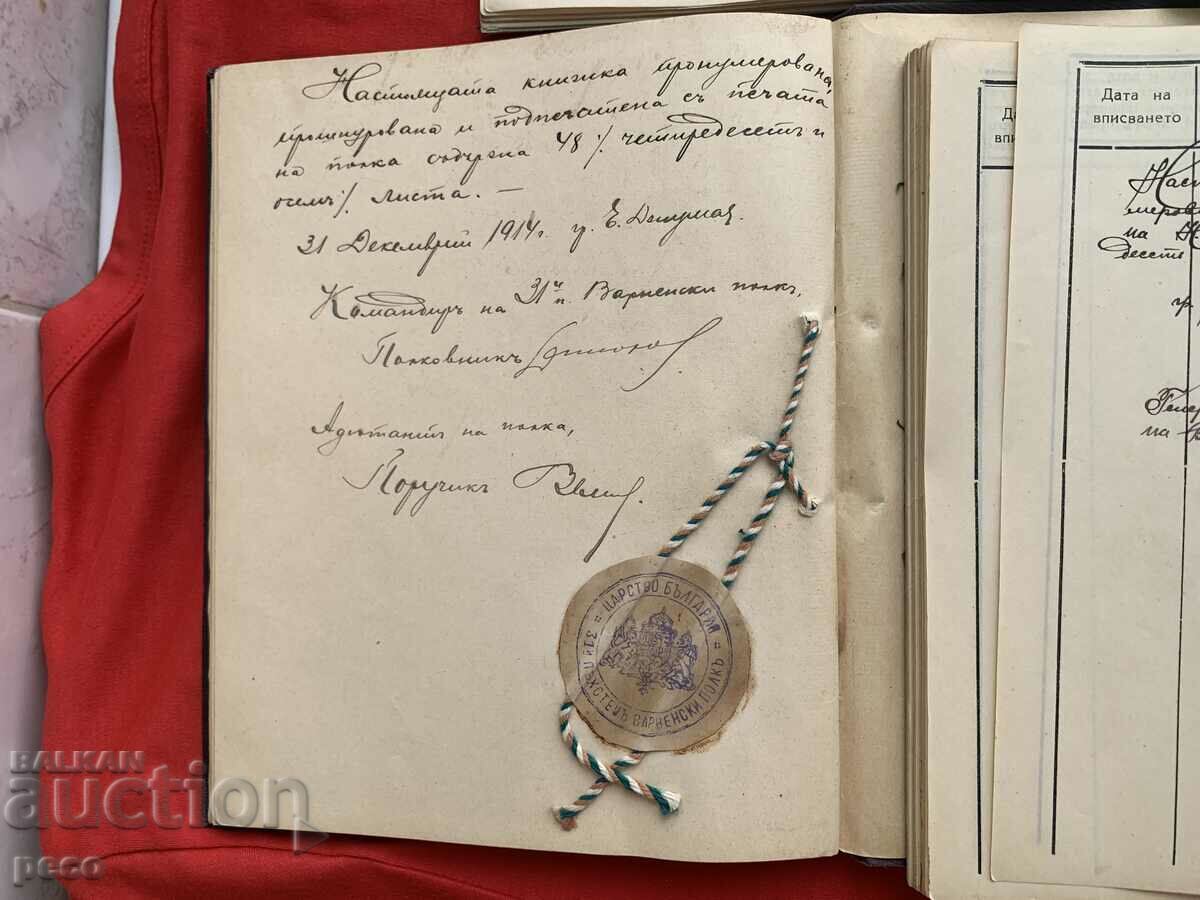 Настоящата книжка пронумерована,
прошнурована и подпечатена съ печата
на полка съдържа 48 %. четиредесеть и
осемь %. листа. —
31 Декемврий 1914 г. гр. Г. Джумая.
Командиръ на 31й п. Варненски полкъ,
Полковникъ
Адютантъ на полка,
Поручикъ
= ЦАРСТВО БЪЛГАРИЯ =
31й ПѢХОТЕНЪ ВАРНЕНСКИ ПОЛКЪ
Да
впи
Дата на
вписването
Наст
меров
на
десеть
гр.
Генер
на
BALKAN
auction
peco